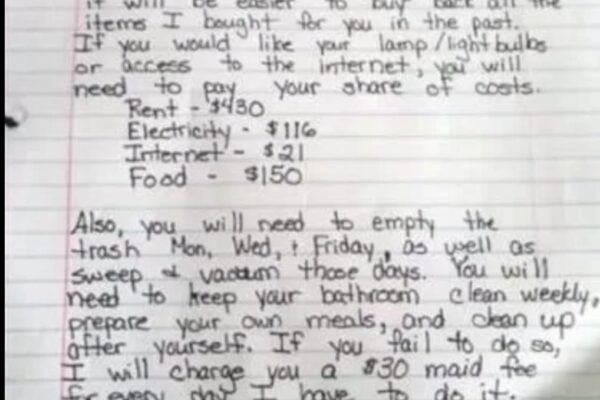 it will be easier to buy back all the
items I bought for you in the past.
If you would like your lamp/lightbulbs
or access to the internet, you will
need to pay your share of costs.
Rent - $430
Electricity - $116
Internet - $21
Food - $150
Also, you will need to empty the
trash Mon, Wed, + Friday, as well as
sweep + vacuum those days. You will
need to keep your bathroom clean weekly,
prepare your own meals, and clean up
after yourself. If you fail to do so,
I will charge you a $30 maid fee
for every day I have to do it.